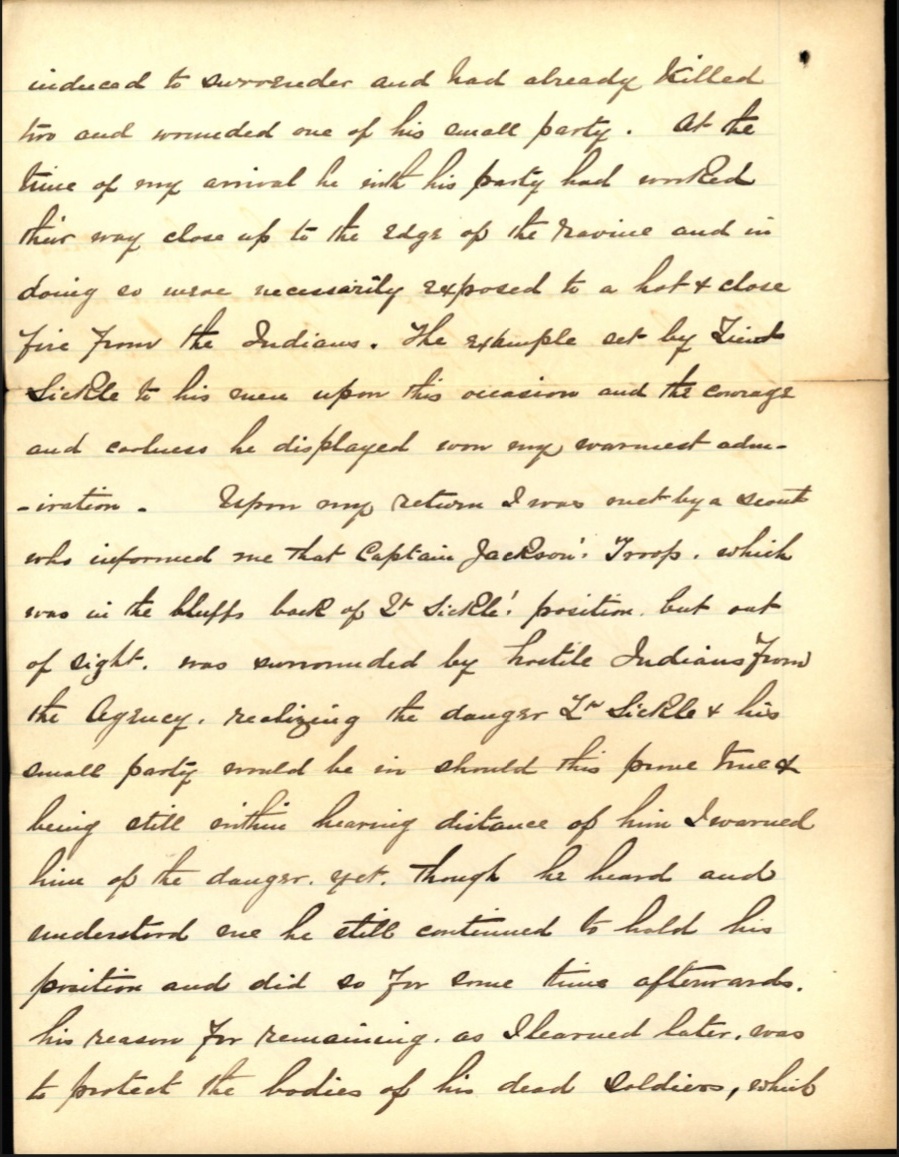 induced to surrender and had already killed
two and wounded one of his small party. At the
time of my arrival he with his party had worked
their way close up to the edge of the ravine and in
doing so were necessarily exposed to a hot & close
fire from the Indians. The example set by Lieut
Sickle to his men upon this occasion and the courage
and coolness he displayed won my warmest adm-
-iration. Upon my return I was met by a scout
who informed me that Captain Jackson's Troop. which
was in the bluffs back of Lt Sickle's position. but out
of sight. was surrounded by hostile Indians from
the Agency. realizing the danger Lt Sickle & his
small party would be in should this prove true &
being still within hearing distance of him I warned
him of the danger. yet. though he heard and
understood me he still continued to hold his
position and did so for some time afterwards.
his reason for remaining. as I learned later. was
to protect the bodies of his dead soldiers, which